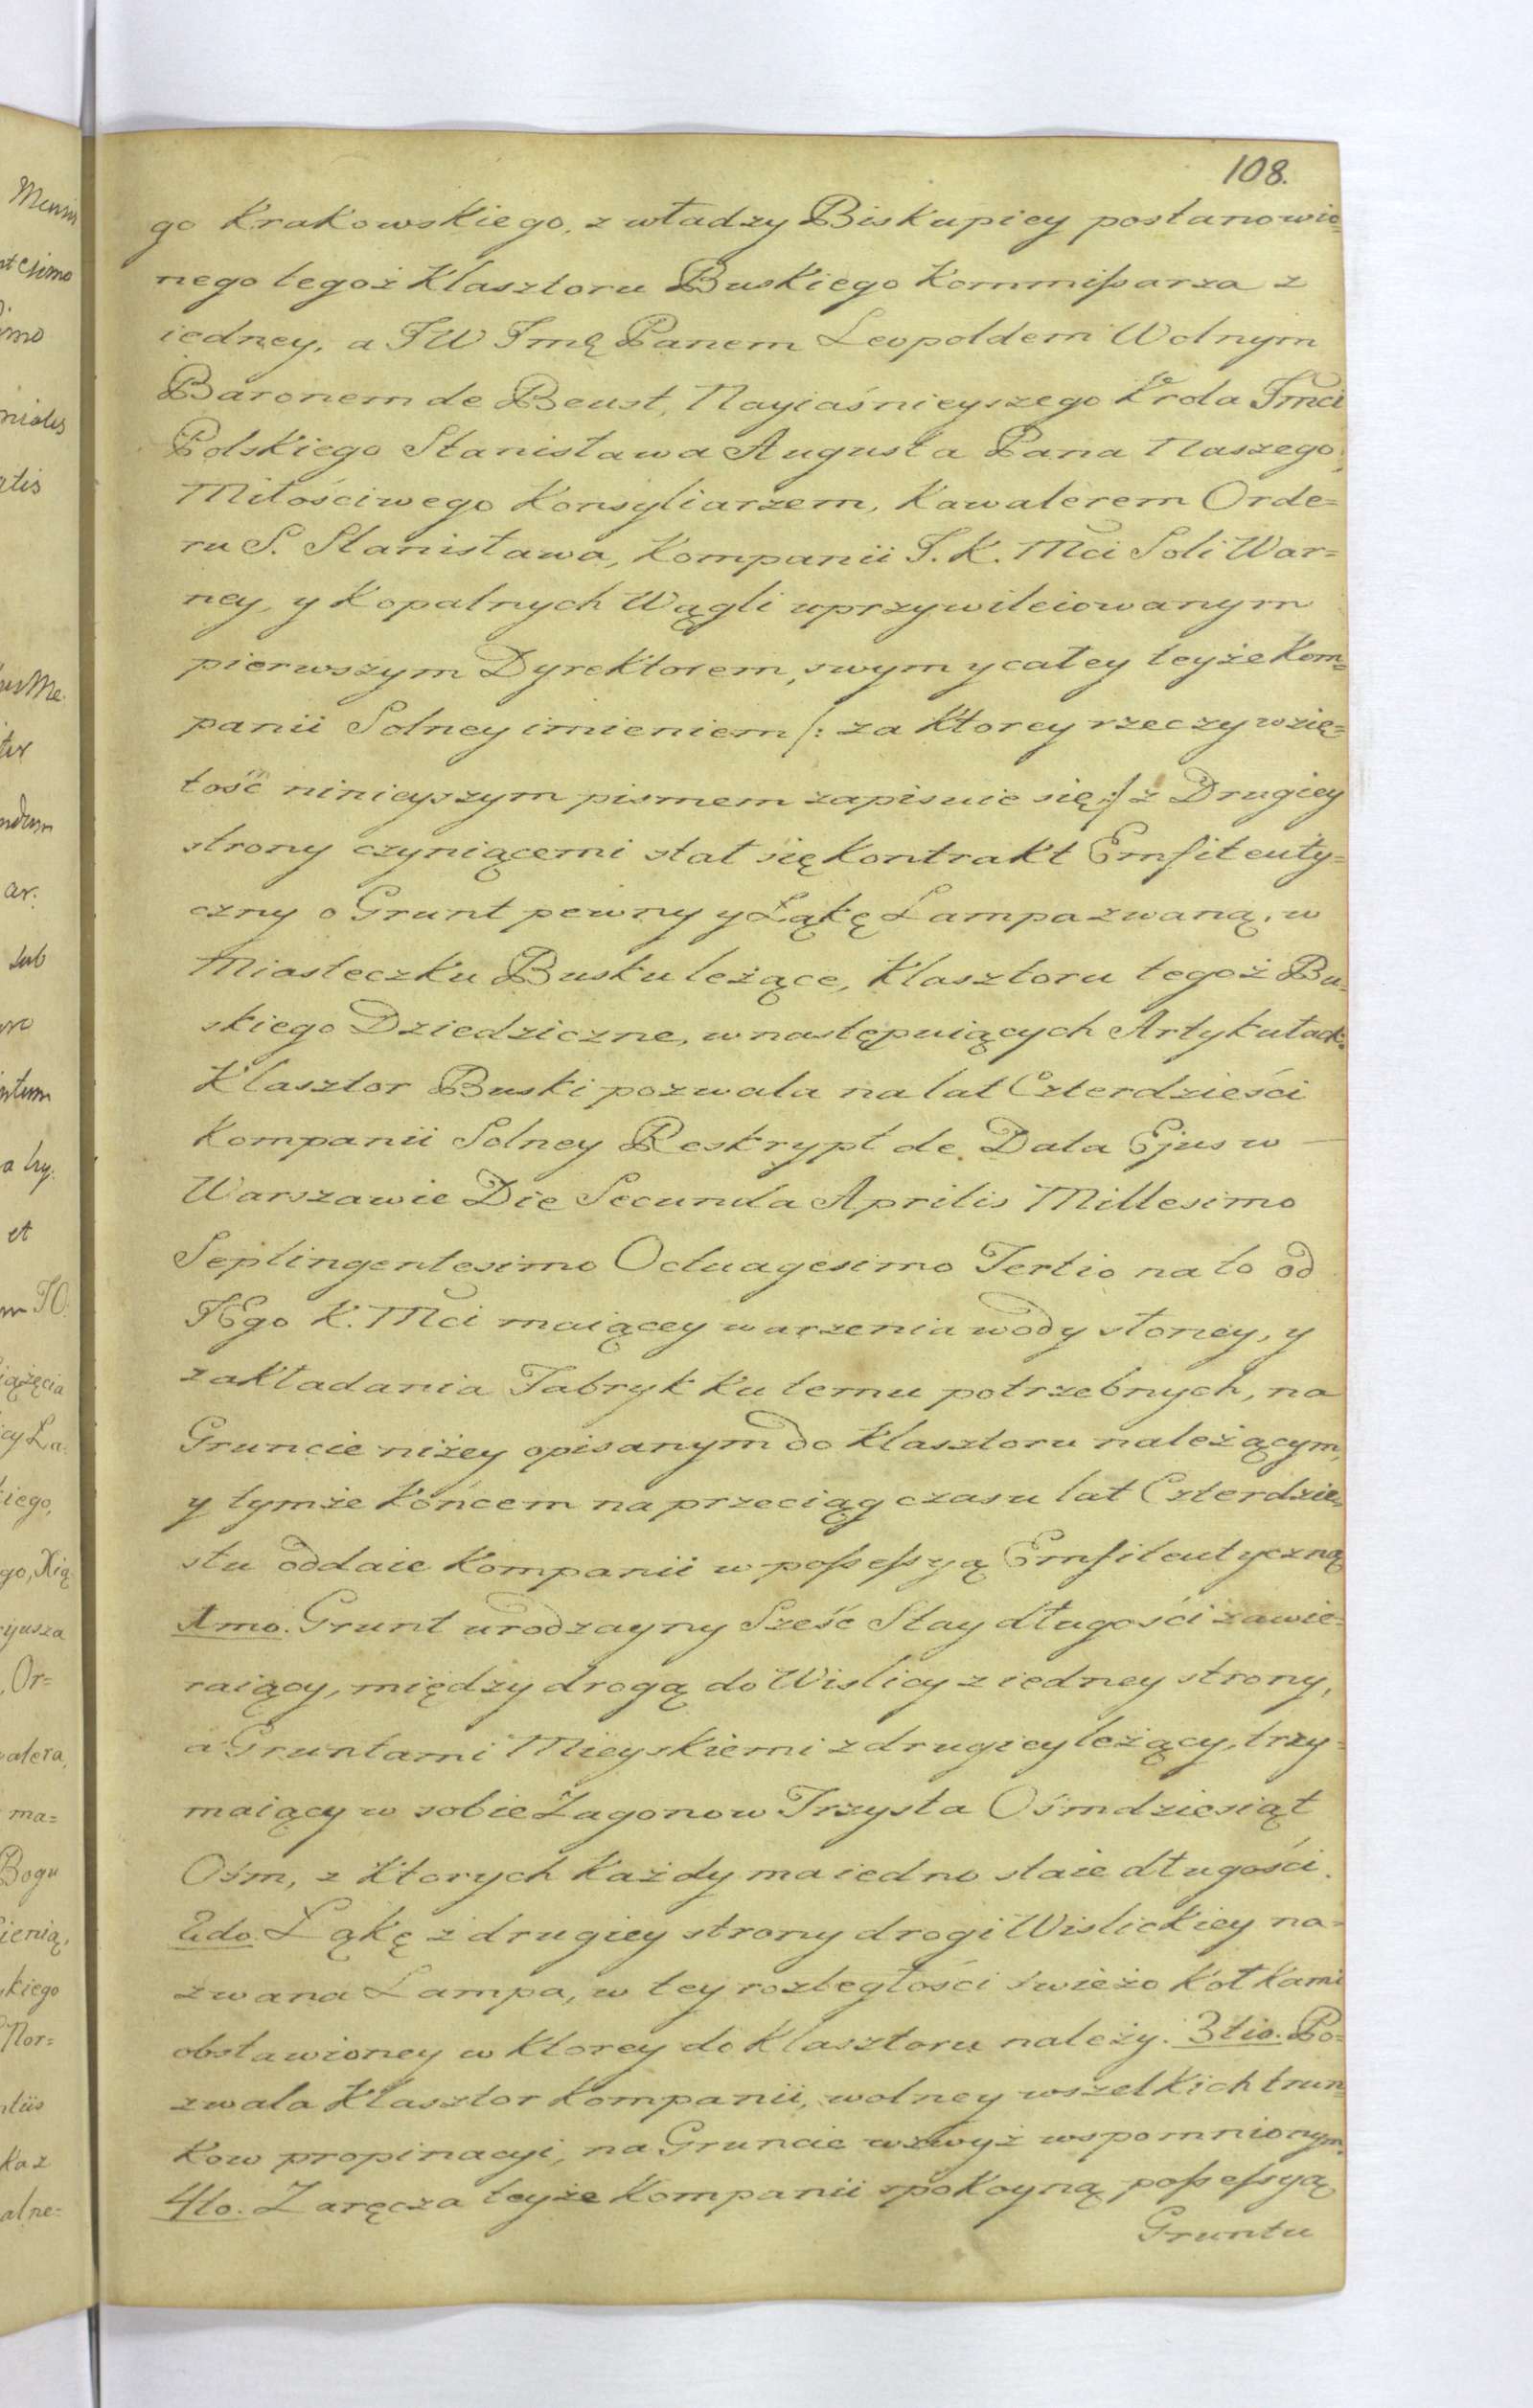 108.
go Krakowskiego, z władzy Biskupiey postanowio=
nego tegoż Klasztoru Buskiego Kommissarza z
iedney, a JW Jmę Panem Leopoldem Wolnym
Baronem de Beust, Nayiaśnieyszego Krola Jmci
Polskiego Stanisława Augusta Pana Naszego,
Miłościwego Konsyliarzem, Kawalerem Orde=
ru S. Stanisława, Kompanii J. K. Mci Soli War=
ney, y Kopalnych Wągli uprzywileiowanym
pierwszym Dyrektorem, swym y całey teyże Kom=
panii Solney imieniem /: za ktorey rzeczy wzię=
tość ninieyszym pismem zapisuie się :/ z Drugiey
strony czyniącemi stał się Kontrakt Emfiteuty=
czny o Grunt pewny y Łąkę Lampa zwaną, w
Miasteczku Busku leżące, Klasztoru tegoż Bu=
skiego Dziedziczne, w następuiących Artykułach.
Klasztor Buski pozwala na lat Czterdzieści
Kompanii Solney Reskrypt de Data Ejus w
Warszawie Die Secunda Aprilis Millesimo
Septingentesimo Octuagesimo Tertio na to od
JEgo K. Mci maiącey warzenia wody słoney, y
zakładania Fabryk ku temu potrzebnych, na
Gruncie niżey opisanym do Klasztoru należącym,
y tymże Końcem na przeciąg czasu lat Czterdzie=
stu oddaie Kompanii w possessyą Emfiteutyczną
1mo. Grunt urodzayny Sześć Stay długości zawie=
raiący, między drogą do Wislicy z iedney strony,
a Gruntami Mieyskiemi z drugiey leżący, trzy=
maiący w sobie Zagonow Trzysta Ośmdziesiąt
Ośm, z ktorych każdy ma iedno staie długości.
2do. Łąkę z drugiey strony drogi Wislickiey na=
zwana Lampa, w tey rozległości świeżo Kołkami
obstawioney w ktorey do Klasztoru należy. 3tio. Po=
zwala Klasztor Kompanii, wolney wszelkich trun=
kow propinacyi, na Gruncie wzwyż wspomnionym.
4to. Zaręcza teyże Kompanii spokoyną possessyą
Gruntu